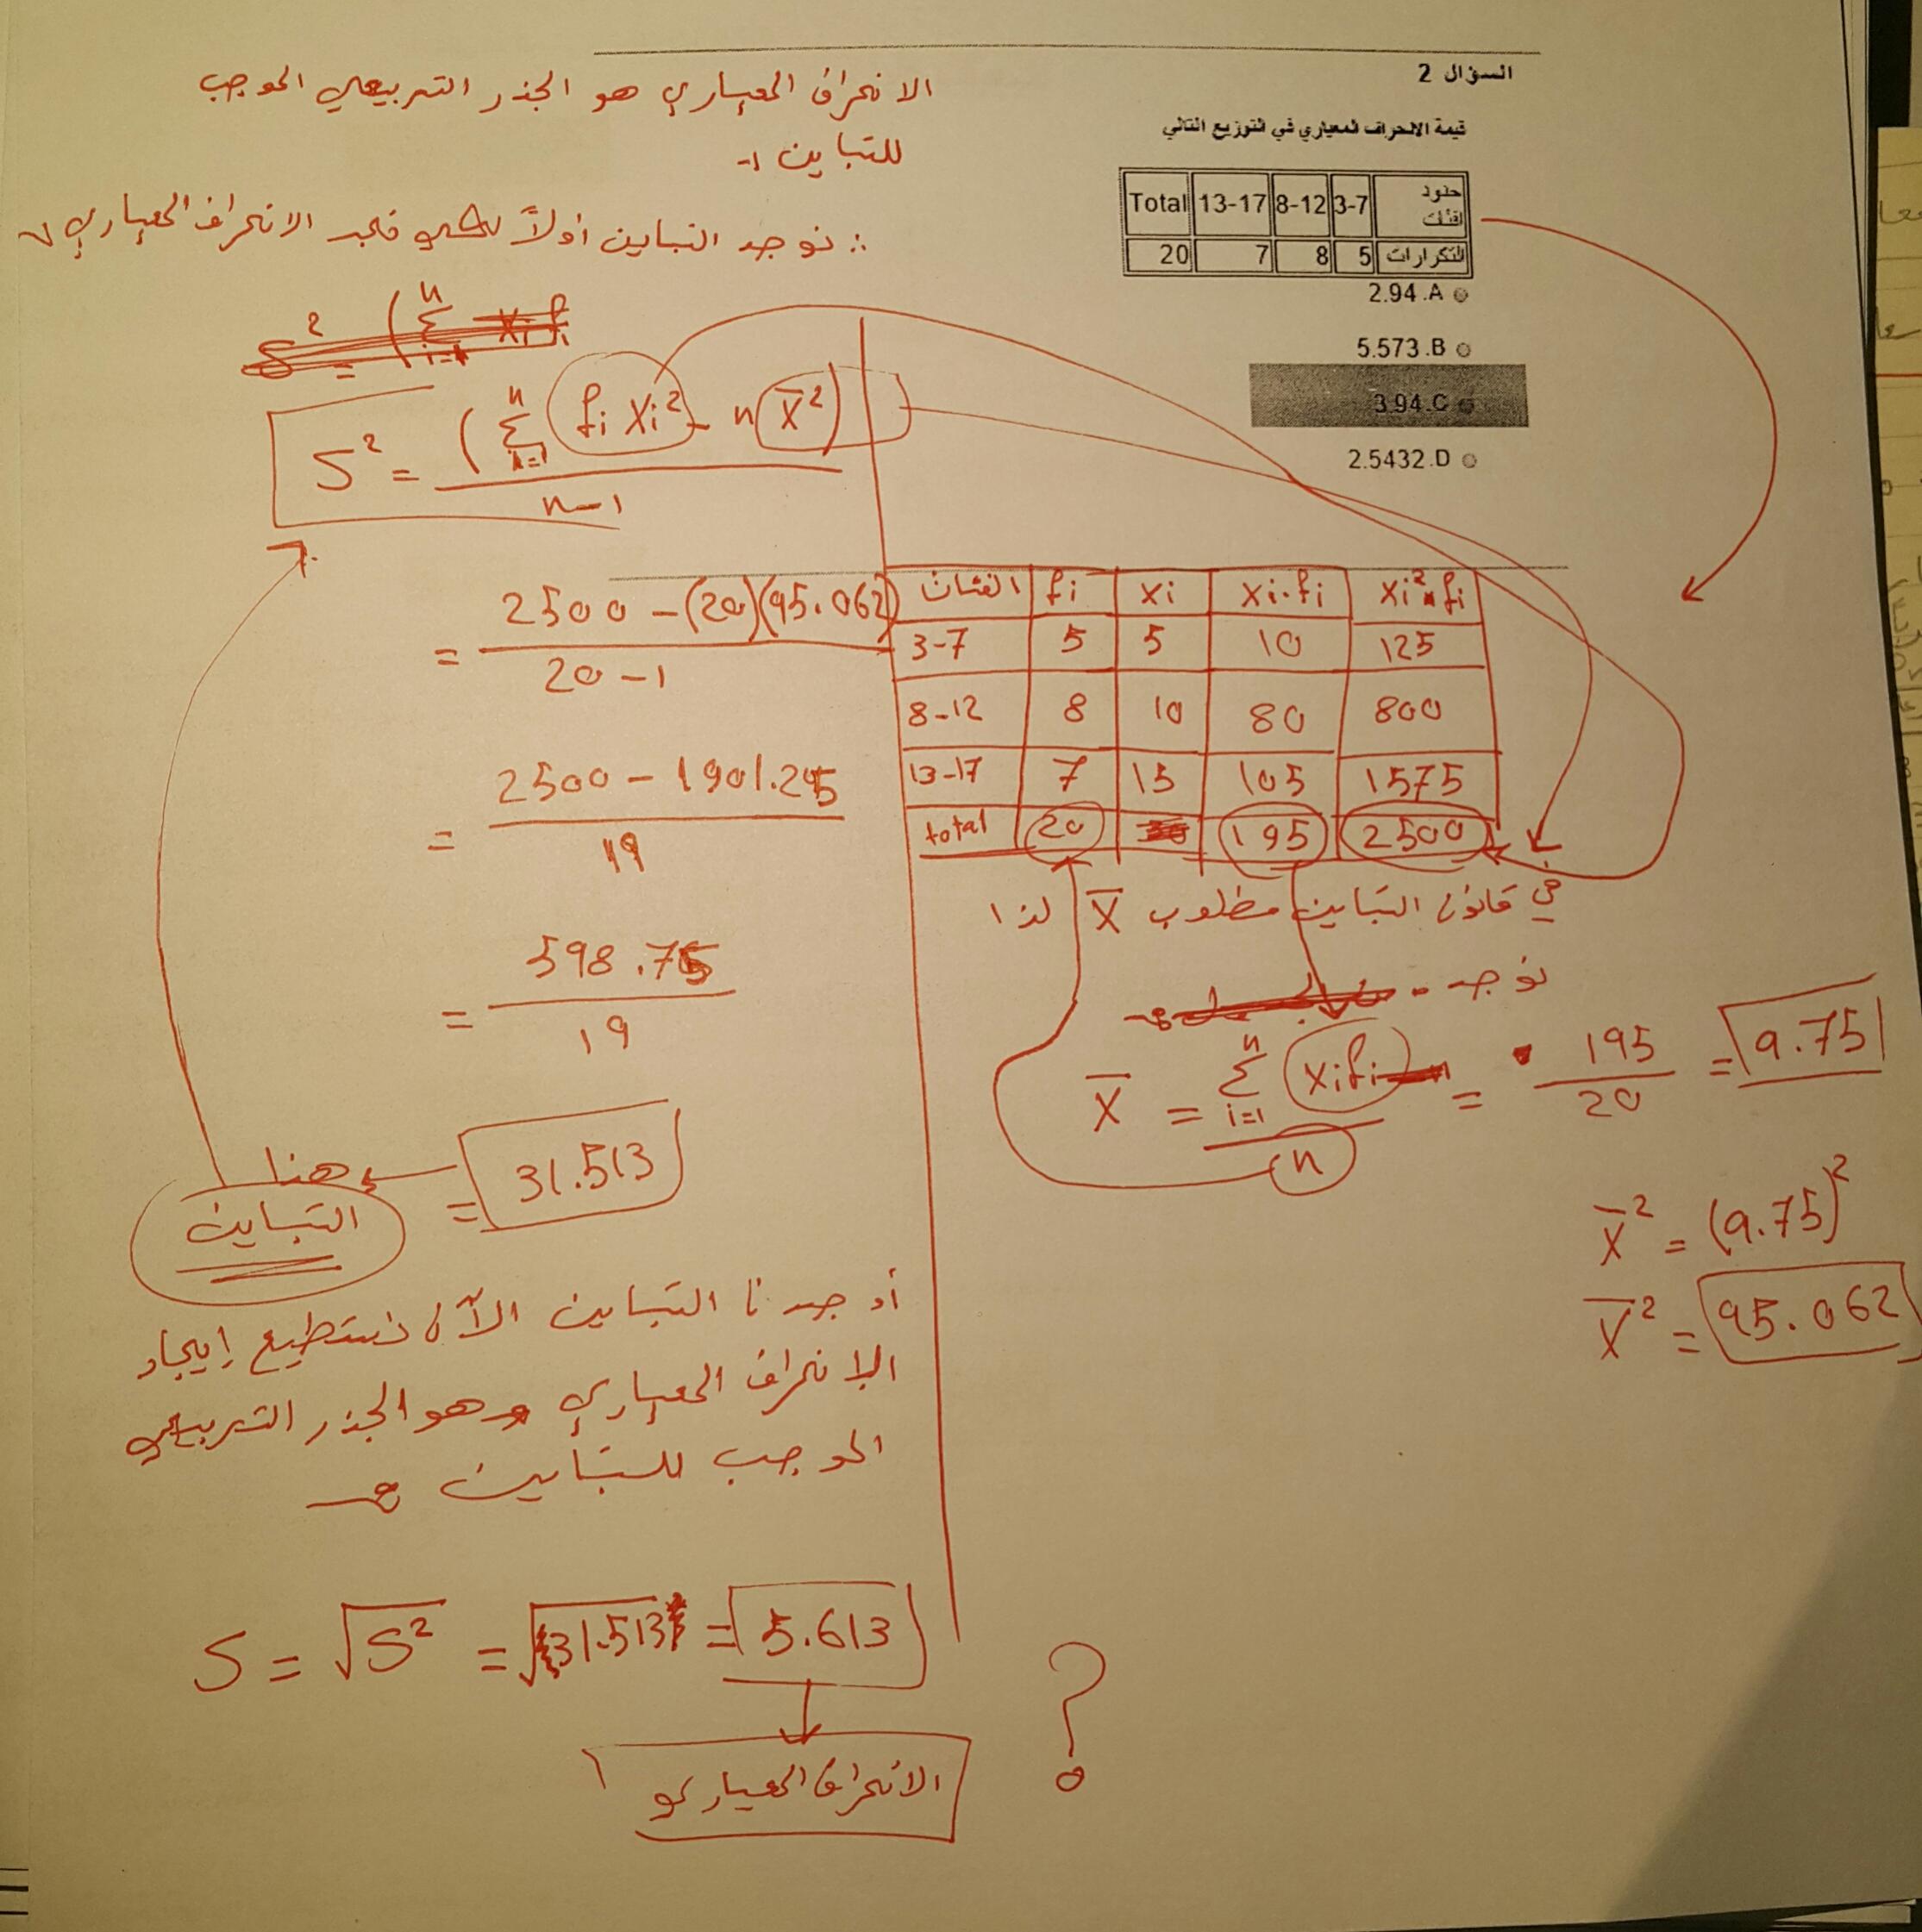 السؤال 2
قيمة الانحراف المعياري في التوزيع التالي
حدود الفئات 3-7 8-12 13-17 Total
التكرارات 5 8 7 20
2.94 .A
5.573 .B
3.94 .C
2.5432 .D
الانحراف المعياري هو الجذر التربيعي الموجب
للتباين :-
∴ نوجد التباين أولاً لكي نجد الانحراف المعياري
S² = (Σ i=1 n fi xi² - n x̄²) / n-1
= 2500 - (20)(95.062) / 20 - 1
= 2500 - 1901.25 / 19
= 598.75 / 19
= 31.513
هنا
التباين
أوجدنا التباين الآن نستطيع إيجاد
الانحراف المعياري وهو الجذر التربيعي
الموجب للتباين
S = √S² = √31.513 = 5.613
الانحراف المعياري
؟
الفئات fi xi xi.fi xi².fi
3-7 5 5 10 125
8-12 8 10 80 800
13-17 7 15 105 1575
total 20 195 2500
في قانون التباين مطلوب x̄ لذا
نوجد
x̄ = Σ i=1 n xifi / n = 195 / 20 = 9.75
x̄² = (9.75)²
x̄² = 95.062